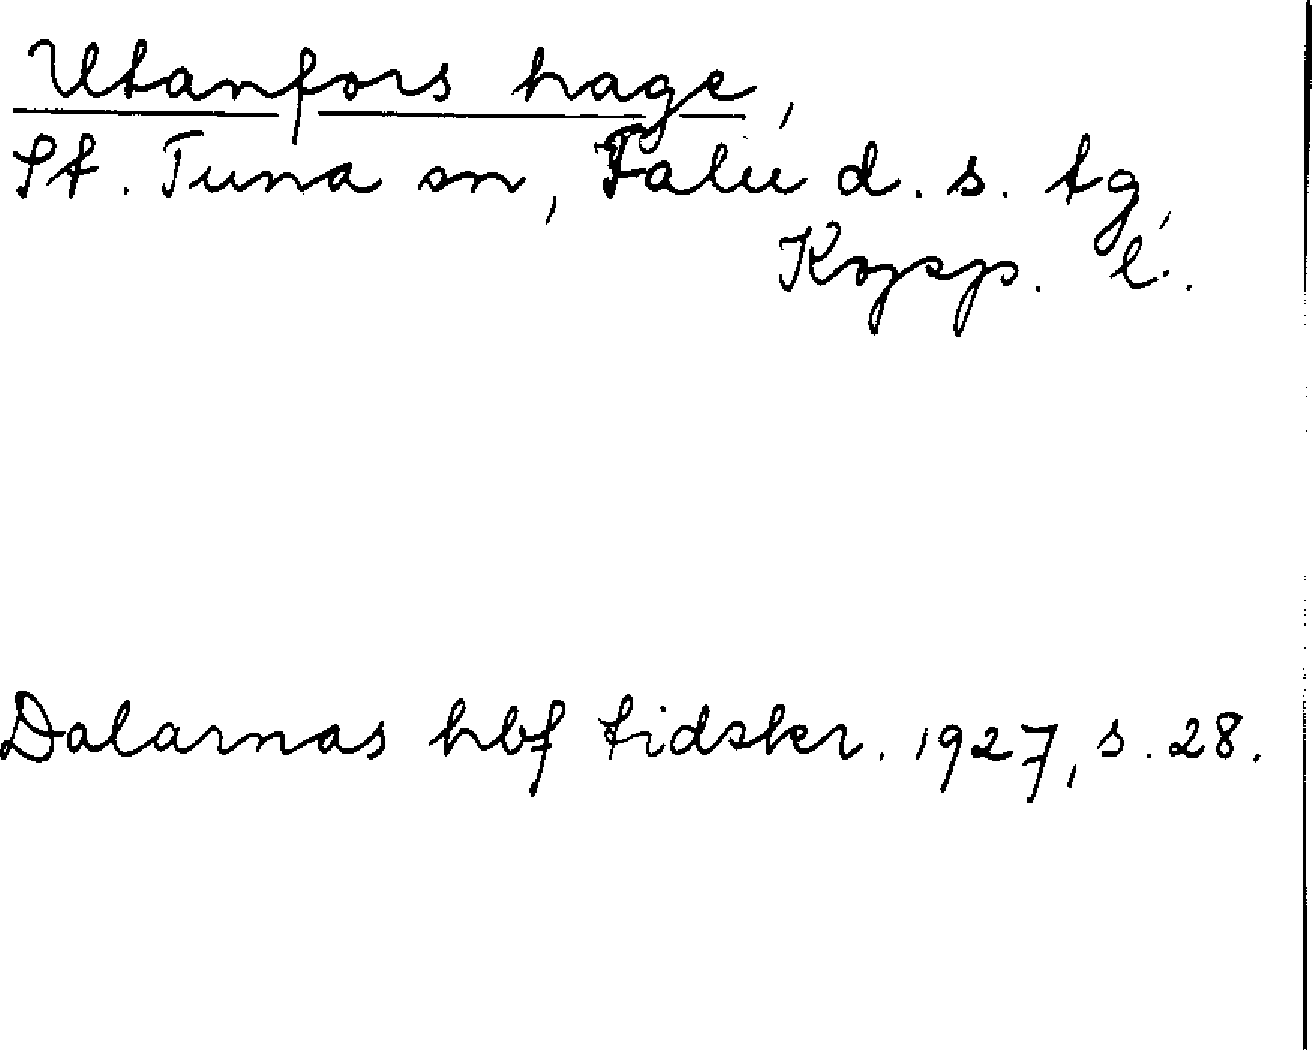 Utanfors hage,
St. Tuna sn, Falu d. s. tg,
Kopp. l.
Dalarnas hbf tidskr. 1927, s. 28.